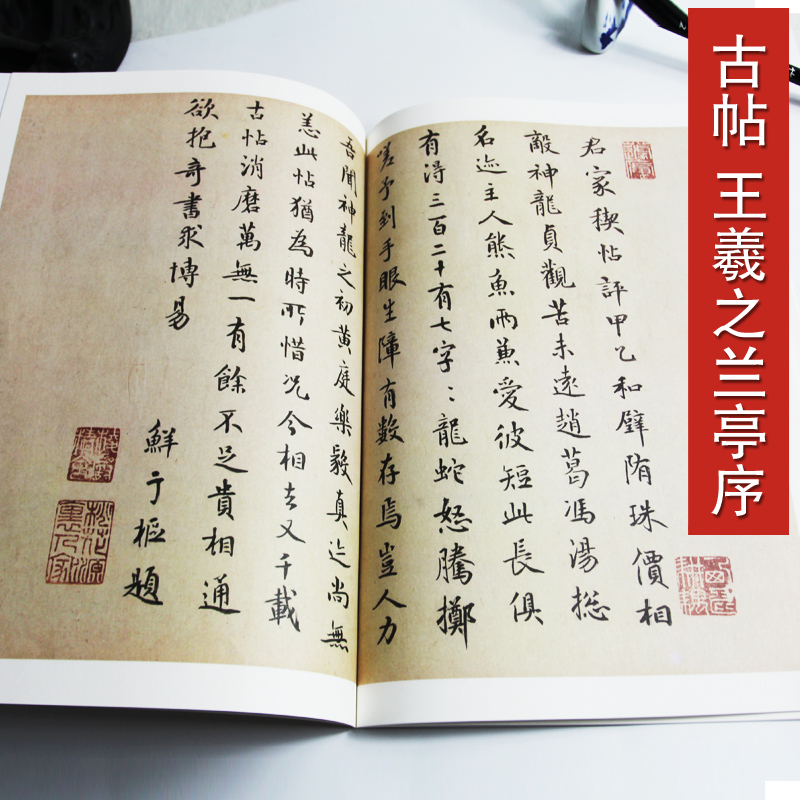 古帖 王羲之兰亭序
君家稧帖評甲乙和璧隋珠價相
敵神龍貞觀苦未遠趙葛馮湯揔
名迹主人熊魚兩兼愛彼短此長俱
有得三百二十有七字〻龍蛇怒騰擲
嗟予到手眼生障有數存焉豈人力
吾聞神龍之初黄庭樂毅真迹尚無
恙此帖猶為時所惜况今相去又千載
古帖消磨萬無一有餘不足貴相通
欲抱奇書求博易
鮮于樞題
桃花源裏人家